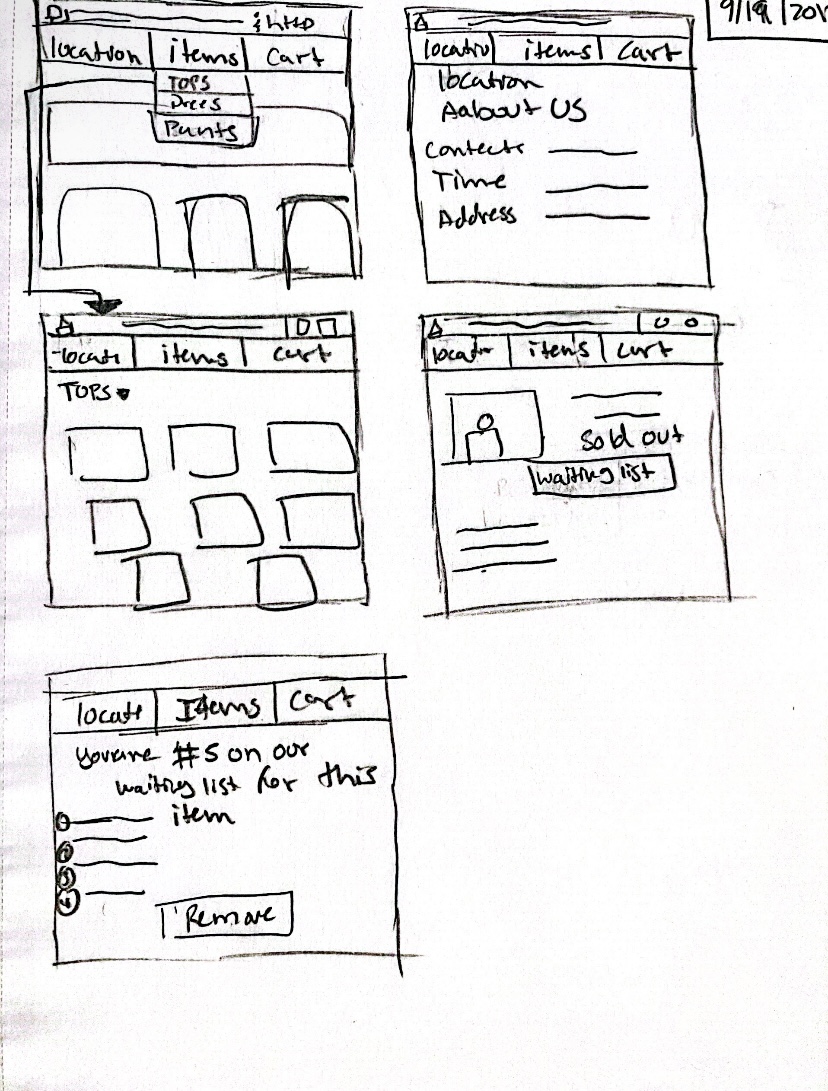 location items Cart
TOPS
Drees
Pants
9/19
locatio items Cart
location
Aabout US
Contects
Time
Address
locate items cart
TOPS
locat items Cart
Sold out
waiting list
locate Items Cart
You are #5 on our
waiting list for this
item
1
2
3
4
Remove